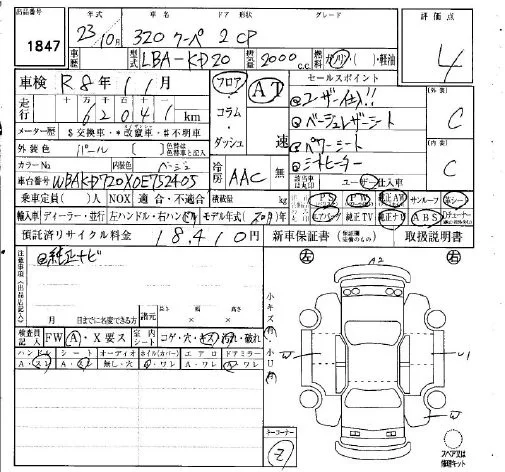 出品番号 1847
年式 23 10月 車名 320クーペ ドア 形状 2 CP グレード
車歴 型式 LBA-KD20 排気量 2000 c.c. 燃料 ガソリン・軽油
評価点 4
車検 R8年11月
フロア・コラム・ダッシュ AT 速
セールスポイント
走行 十 万 千 百 十 一 62041 km
@ユーザー仕入!!
メーター歴 $交換車・*改竄車・#不明車
@ベージュレザーシート
外装 C
外装色 パール 色替は色替車と記入
@パワーシート
カラーNo 内装色 ベージュ
@シートヒーター
冷房 AAC 無
内装 C
車台番号 WBAKD720X0E752405
該当車は丸印 ユーザー仕入車
乗車定員( )人 NOX 適合・不適合 積載量 kg PS PW 純正AW サンルーフ 革シート
輸入車 ディーラー・並行 左ハンドル・右ハンドル モデル年式 エアバック 純正TV 純正ナビ ABS
預託済リサイクル料金 18,410円 新車保証書 取扱説明書
注意事項(出品店記入)
@純正ナビ
左 A2 右
月 日までに名変できる方 諸元 長 幅 高 × ×
小キズ有 小凹有
検査員記入 FW A・X要ス 室内シート コゲ・穴・キズ・汚れ・破れ
ハンドル シート オーディオ ホイル(カバー) エアロ ドアミラー
A・スレ A・スレ 無し・穴 A・ワレ A・ワレ A・ワレ
W U1
W
スペア又は修理キット